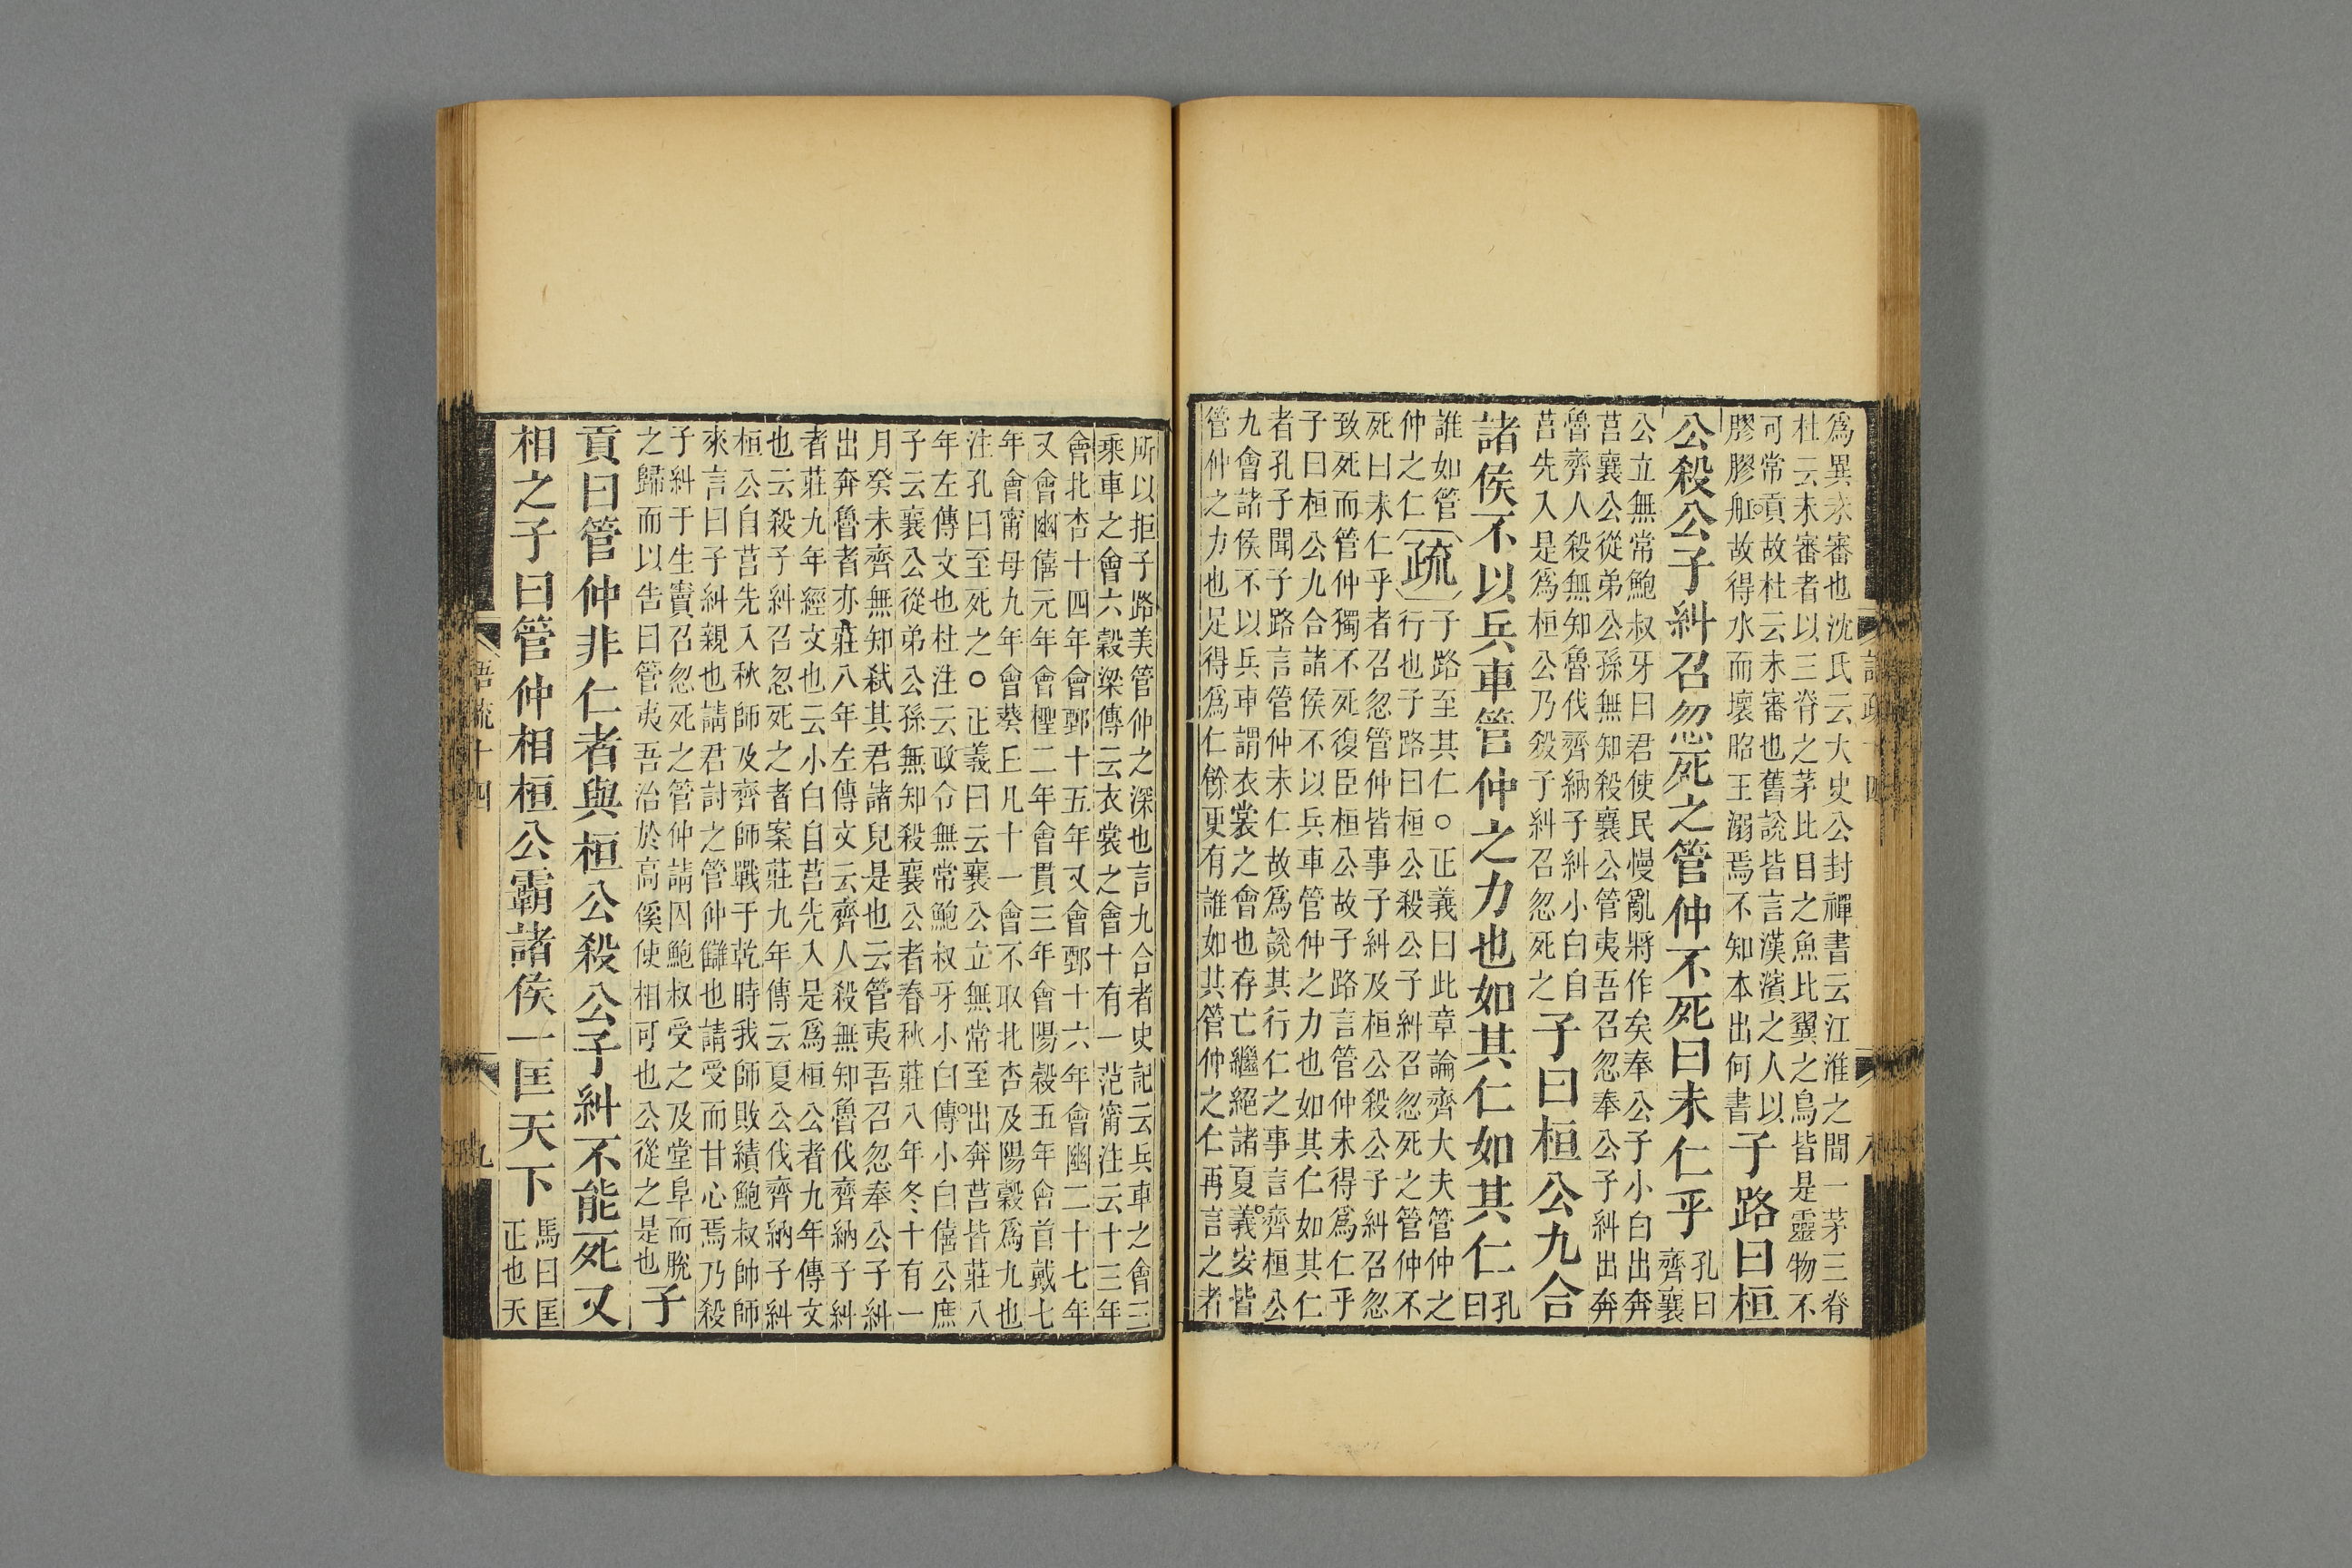 爲異未審也沈氏云大史公封禪書云江淮之間一茅三脊
杜云未審者以三脊之茅比目之魚比翼之鳥皆是靈物不
可常貢故杜云未審也舊說皆言漢濱之人以
膠膠舡故得水而壞昭王溺焉不知本出何書
子路曰桓
公殺公子糾召忽死之管仲不死曰未仁乎
孔曰
齊襄
公立無常鮑叔牙曰君使民慢亂將作矣奉公子小白出奔
莒襄公從弟公孫無知殺襄公管夷吾召忽奉公子糾出奔
魯齊人殺無知魯伐齊納子糾小白自
莒先入是爲桓公乃殺子糾召忽死之
子曰桓公九合
諸侯不以兵車管仲之力也如其仁如其仁
孔
曰
誰如管
仲之仁
疏
子路至其仁○正義曰此章論齊大夫管仲之
行也子路曰桓公殺公子糾召忽死之管仲不
死曰未仁乎者召忽管仲皆事子糾及桓公殺公子糾召忽
致死而管仲獨不死復臣桓公故子路言管仲未得爲仁乎
子曰桓公九合諸侯不以兵車管仲之力也如其仁如其仁
者孔子聞子路言管仲未仁故爲說其行仁之事言齊桓公
九會諸侯不以兵車謂衣裳之會也存亡繼絕諸夏義安皆
管仲之力也足得爲仁餘更有誰如其管仲之仁再言之者
所以拒子路美管仲之深也言九合者史記云兵車之會三
乘車之會六穀梁傳云衣裳之會十有一范甯注云十三年
會北杏十四年會鄄十五年又會鄄十六年會幽二十七年
又會幽僖元年會檉二年會貫三年會陽穀五年會首戴七
年會甯母九年會葵丘凡十一會不取北杏及陽穀爲九也
注孔曰至死之○正義曰云襄公立無常至出奔莒皆莊八
年左傳文也杜注云政令無常鮑叔牙小白傳小白僖公庶
子云襄公從弟公孫無知殺襄公者春秋莊八年冬十有一
月癸未齊無知弒其君諸兒是也云管夷吾召忽奉公子糾
出奔魯者亦莊八年左傳文云齊人殺無知魯伐齊納子糾
者莊九年經文也云小白自莒先入是爲桓公者九年傳文
也云殺子糾召忽死之者案莊九年傳云夏公伐齊納子糾
桓公自莒先入秋師及齊師戰于乾時我師敗績鮑叔帥師
來言曰子糾親也請君討之管仲讎也請受而甘心焉乃殺
子糾于生竇召忽死之管仲請囚鮑叔受之及堂阜而脫
之歸而以告曰管夷吾治於高傒使相可也公從之是也
子
貢曰管仲非仁者與桓公殺公子糾不能死又
相之子曰管仲相桓公霸諸侯一匡天下
馬曰匡
正也天
語疏十四
九